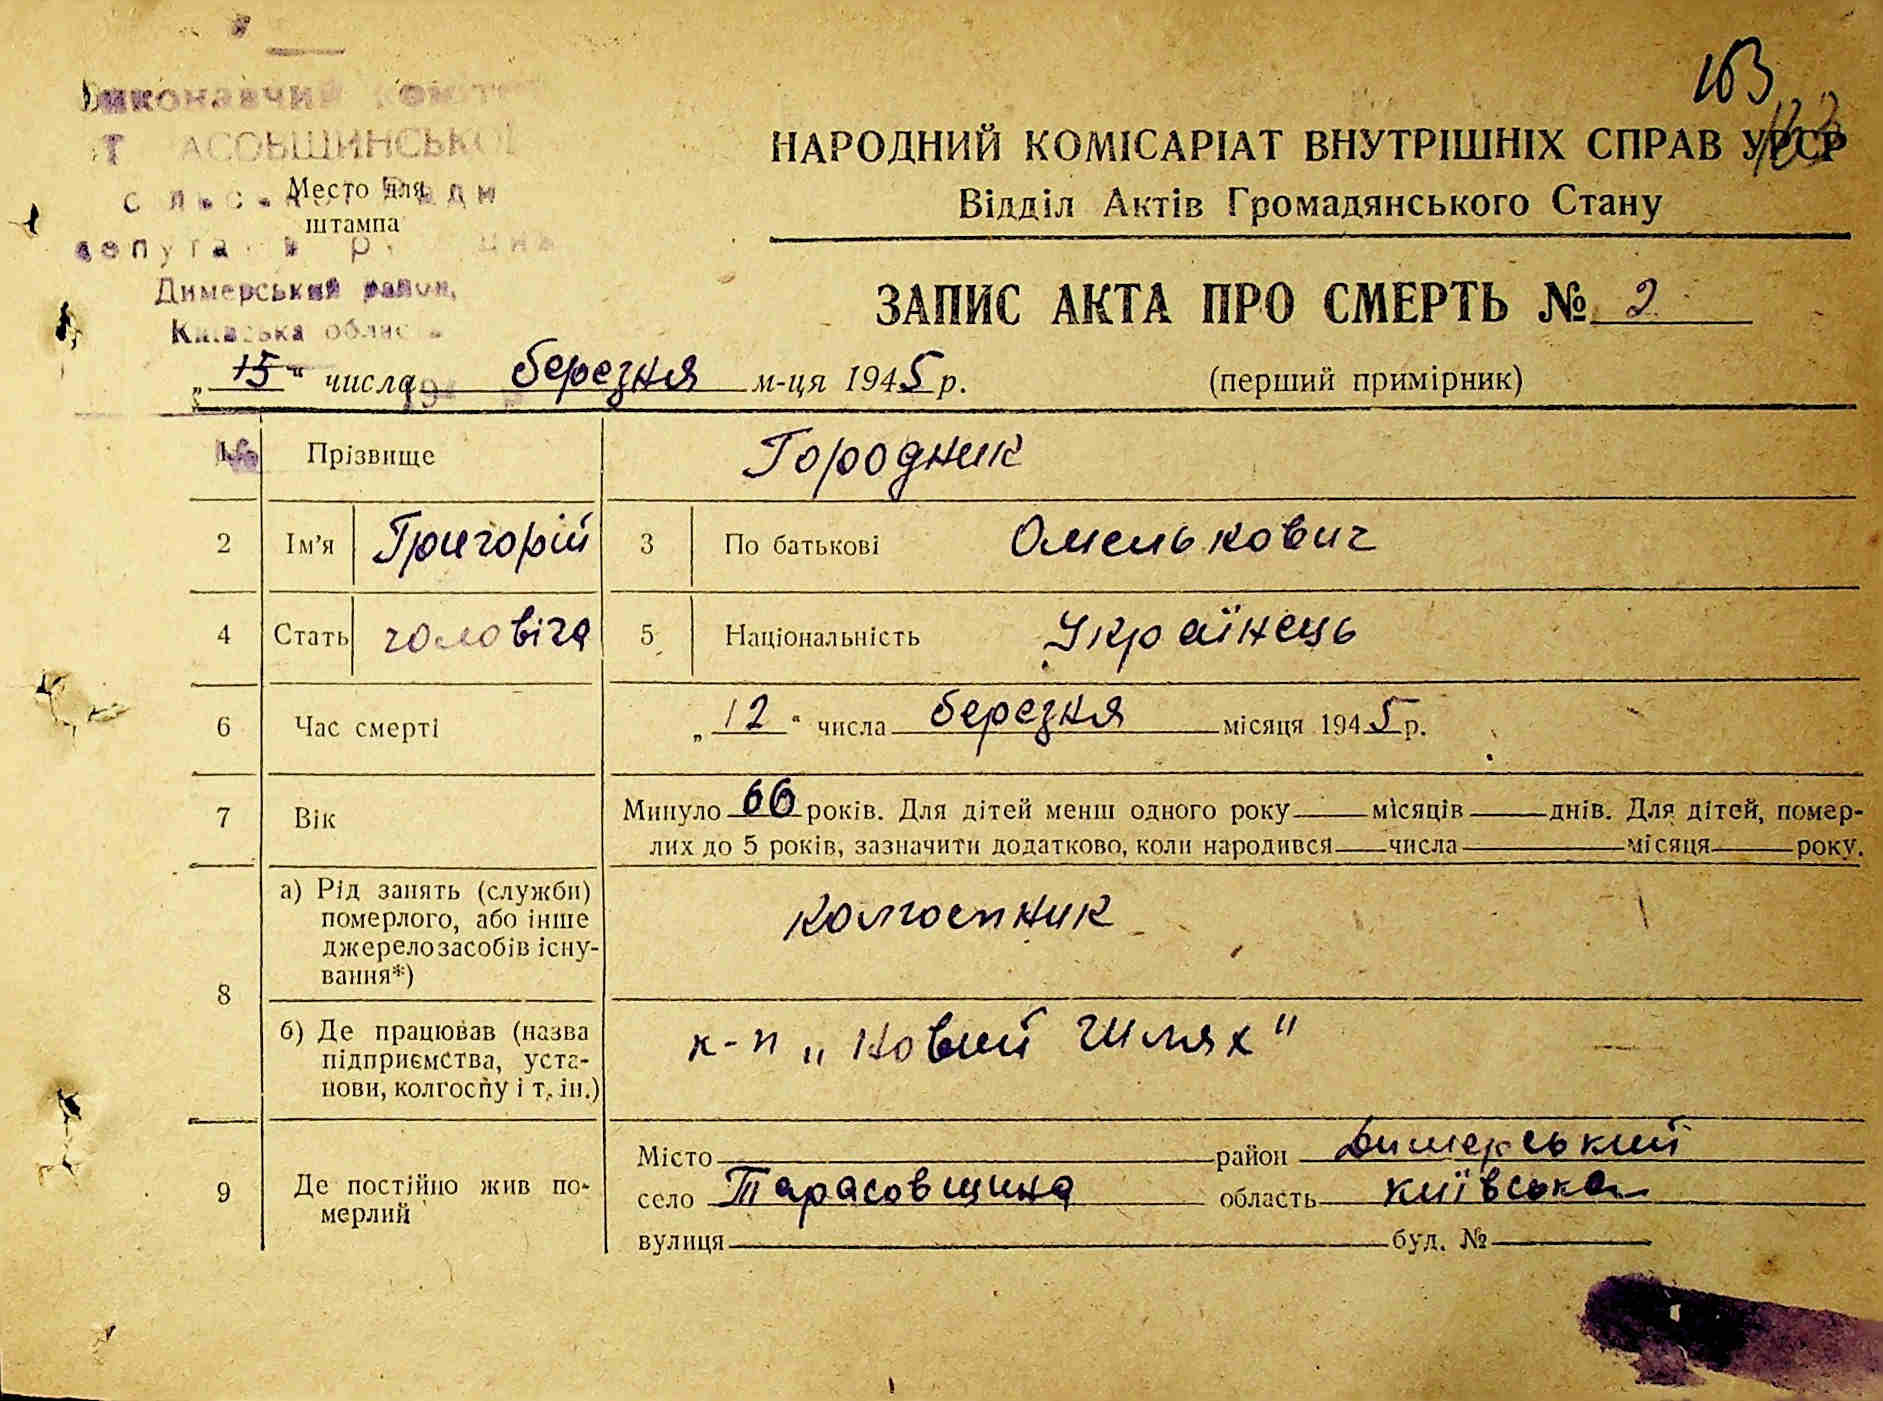 163
163
Виконавчий комітет
Т АСОВЩИНСЬКОЇ
Место для
штампа
Димерський район,
Київська область
НАРОДНИЙ КОМІСАРІАТ ВНУТРІШНІХ СПРАВ УРСР
Відділ Актів Громадянського Стану
ЗАПИС АКТА ПРО СМЕРТЬ № 2
„15“ числа березня м-ця 1945 р.
(перший примірник)
1 Прізвище Городник
2 Ім’я Григорій 3 По батькові Омелькович
4 Стать чоловіча 5 Національність Українець
6 Час смерті „12“ числа березня місяця 1945 р.
7 Вік Минуло 66 років. Для дітей менш одного року місяців днів. Для дітей, помер-
лих до 5 років, зазначити додатково, коли народився числа місяця року.
8 а) Рід занять (служби)
померлого, або інше
джерело засобів існу-
вання*)
колгоспник
б) Де працював (назва
підприємства, уста-
нови, колгоспу і т. ін.)
к-п „Новий Шлях"
9 Де постійно жив по-
мерлий
Місто район Димерський
село Тарасовщина область київська
вулиця буд. №